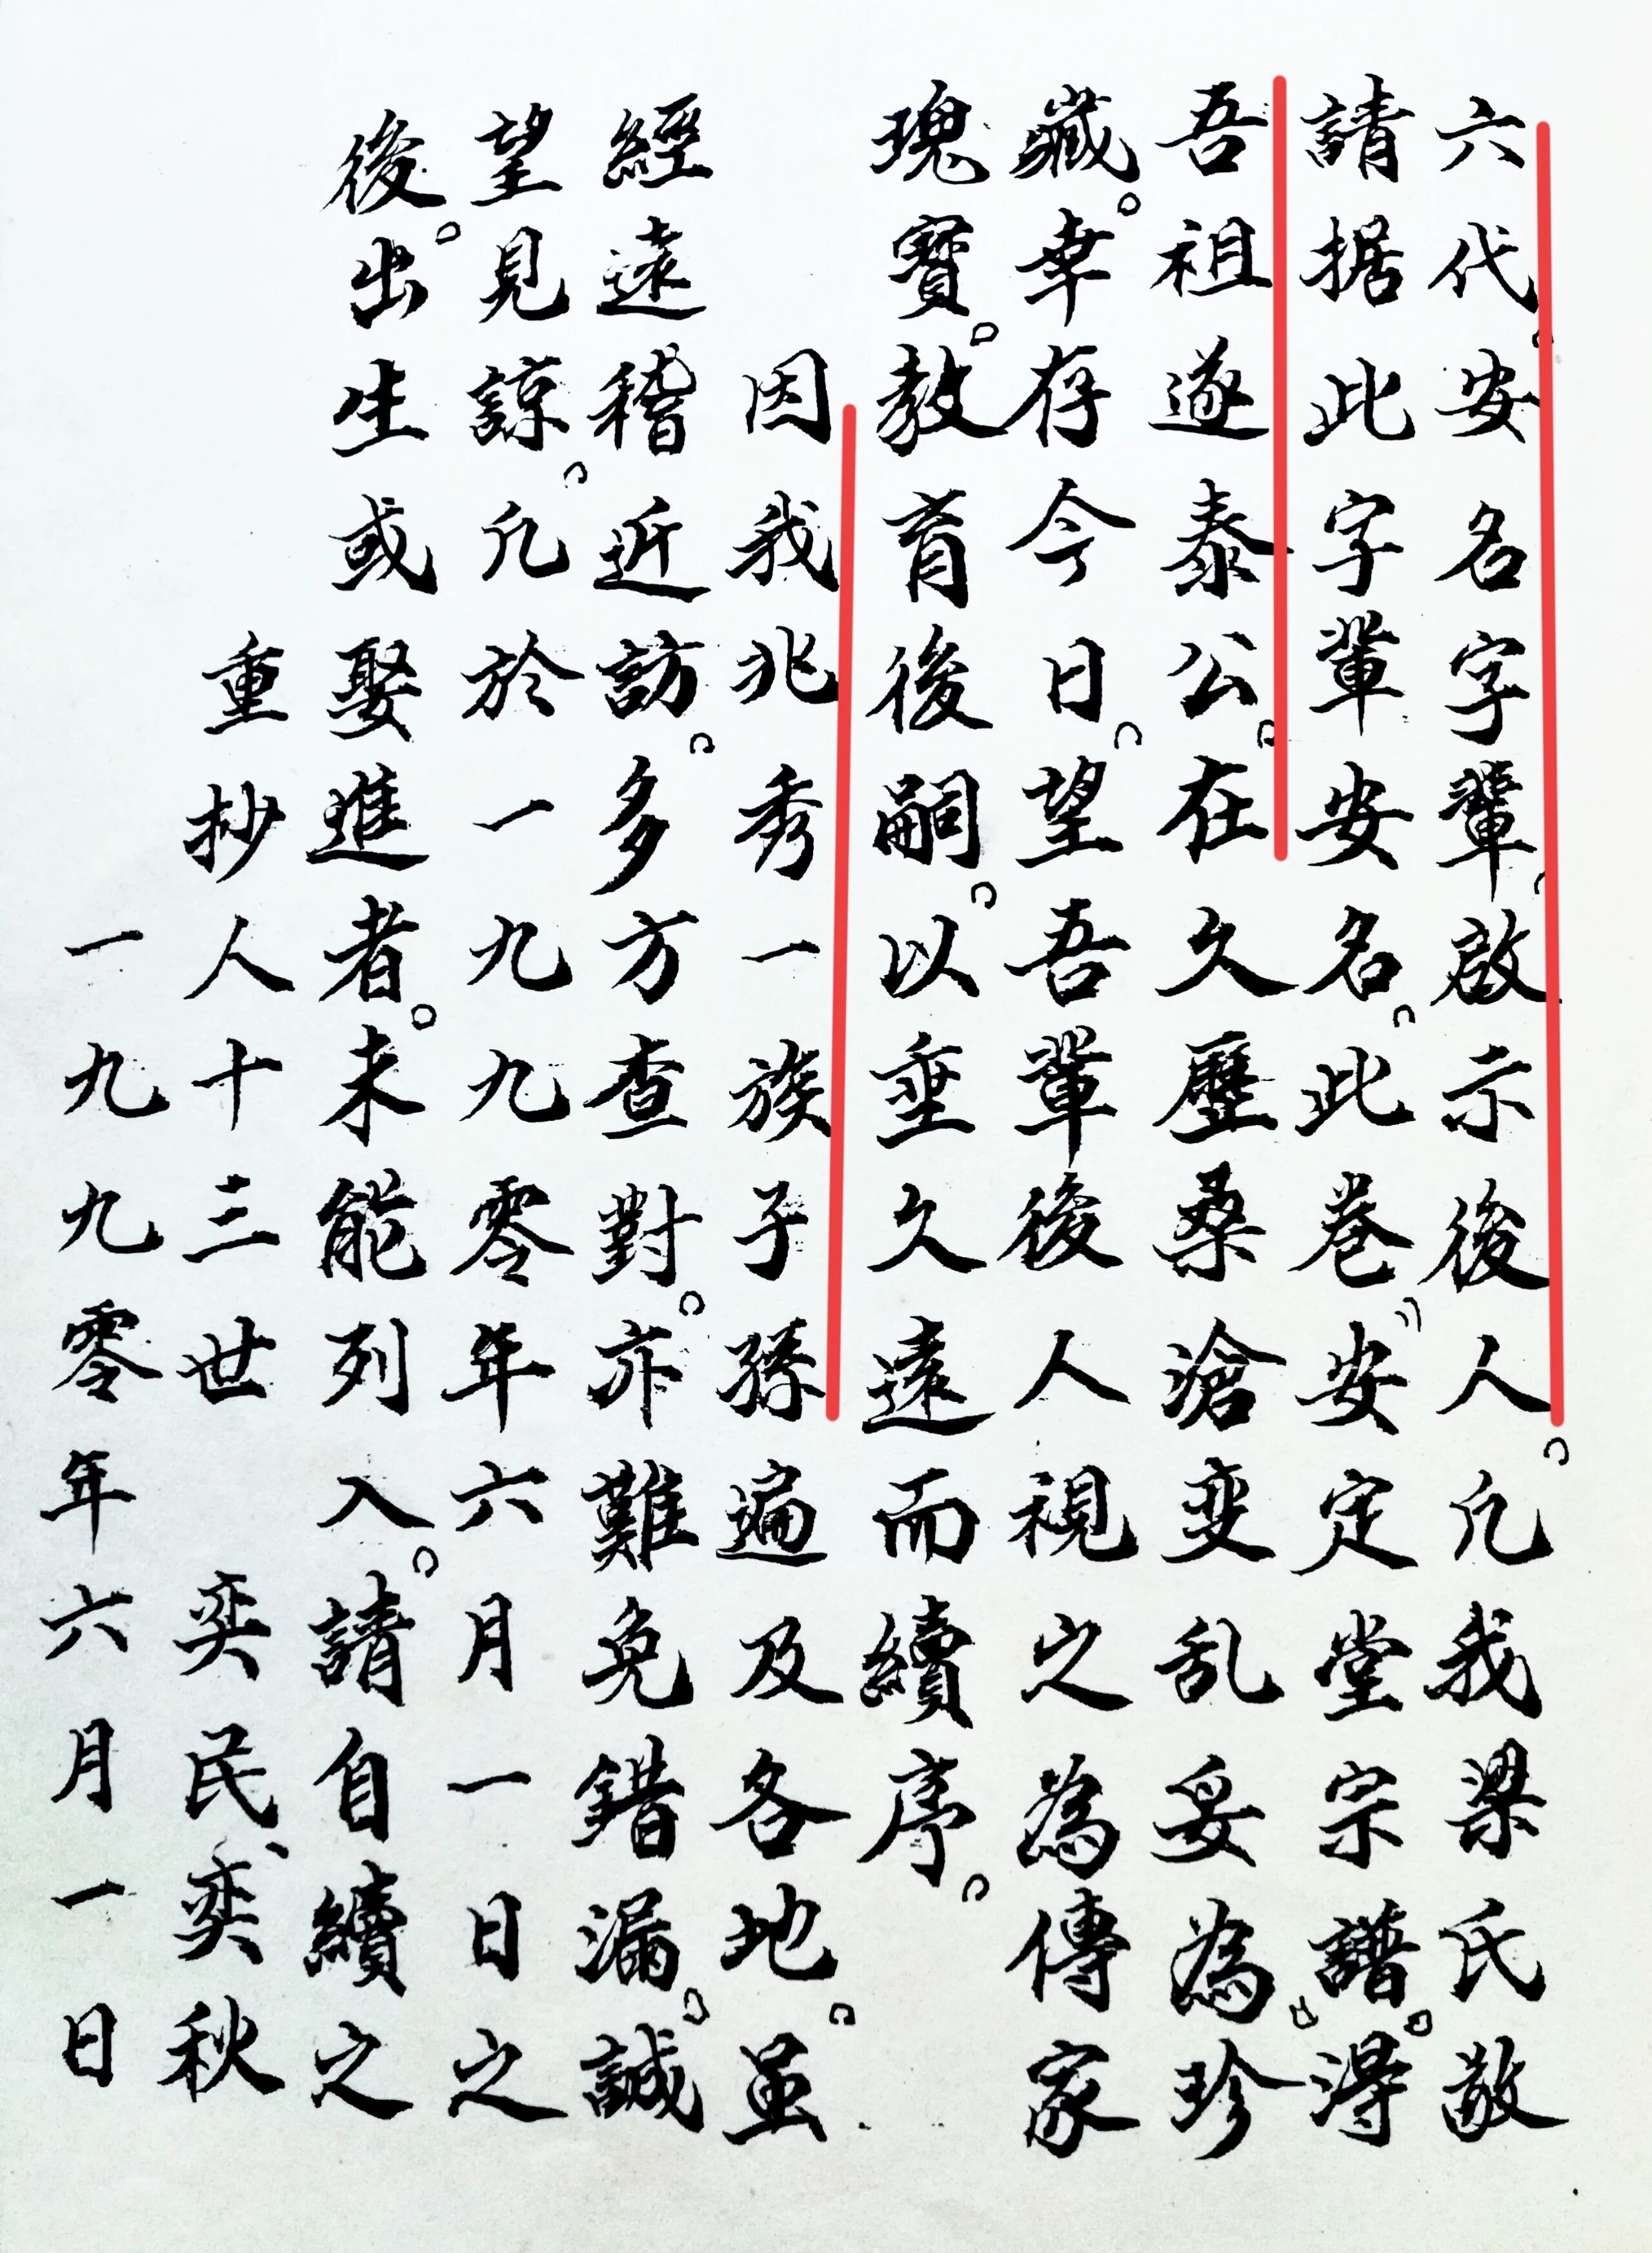 六代。安名字輩。啟示後人。凢我梁氏敬
請据此字輩安名。此卷，安定堂宗譜。得
吾祖遂泰公。在久歷桑滄变乱妥為珍
藏。幸存今日。望吾輩後人視之為傳家
瑰寶。教育後嗣。以垂久遠而續序。
因我兆秀一族子孫遍及各地。虽
經遠稽近訪。多方查對。亦難免錯漏。誠
望見諒。凢於一九九零年六月一日之
後。出生或娶進者。未能列入。請自續之
重抄人十三世 奕民、奕秋
一九九零年六月一日